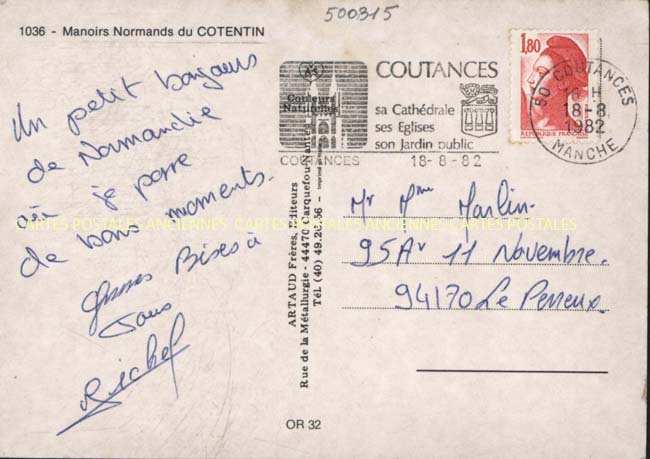 500315
1036 - Manoirs Normands du COTENTIN
Un petit bonjours
de Normandie
où je passe
de bons moments.
grosses Bises à
tous
ARTAUD Frères, Éditeurs
Rue de la Métallurgie - 44470 Carquefou-Nantes
Tél. (40) 49.20.56 - Imprimé
OR 32
Couleurs
Naturelles
COUTANCES
COUTANCES
sa Cathédrale
ses Eglises
son Jardin public
18-8-82
1,80
REPUBLIQUE FRANÇAISE
50 COUTANCES
H
18-8
1982
MANCHE
Mr Mme Marlin
95 Av 11 Novembre.
94170 Le Perreux.
CARTES POSTALES ANCIENNES CARTES POSTALES ANCIENNES CARTES POSTALES ANCIENNES